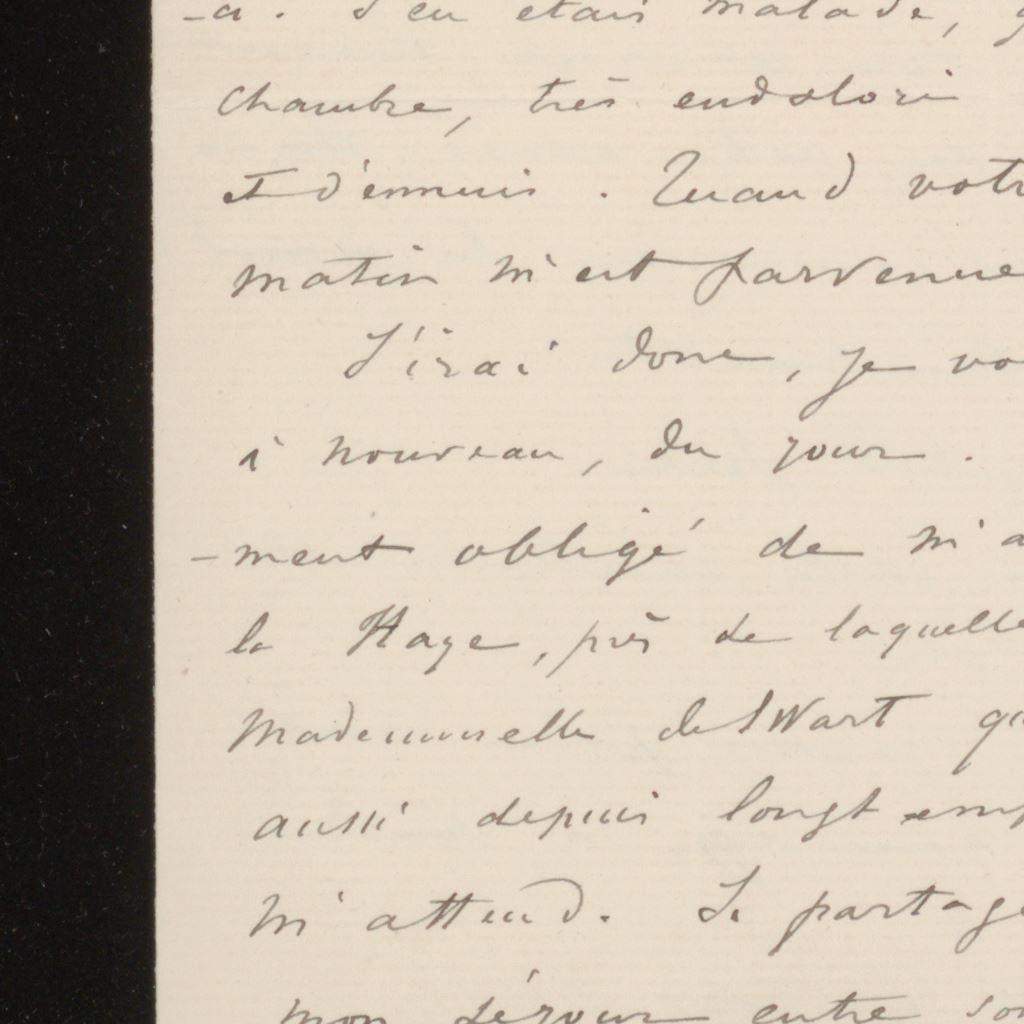 -a. J'en étais malade,
chambre, très endolori
et d'ennuis. Quand votr
matin m'est parvenue
J'irai donc, je vo
à nouveau, du jour.
-ment obligé de m'a
la Haye, près de laquelle
Mademoiselle de Swart qu
aussi depuis longtemp
m'attend. Je partage
mon séjour entre son